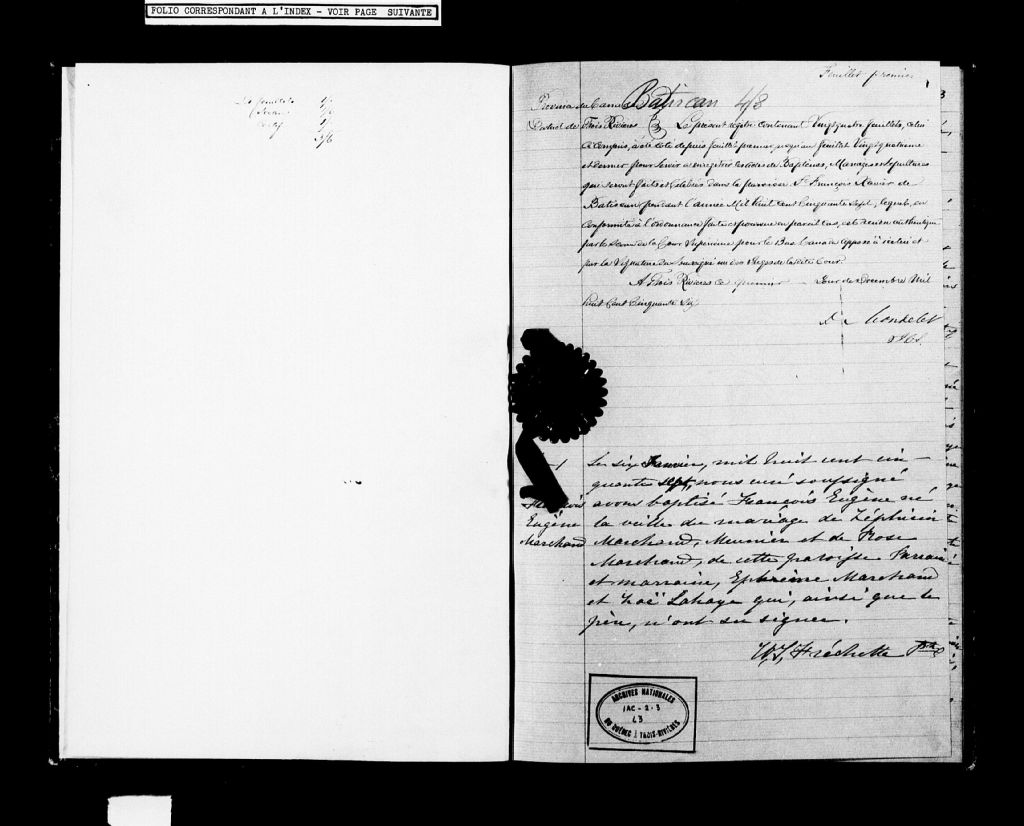 FOLIO CORRESPONDANT A L'INDEX - VOIR PAGE SUIVANTE
Feuillet premier
Batiscan
Province du Canada
District de Trois Rivières
Le présent registre contenant Vingt quatre feuillets, celui
ci compris, a été coté depuis feuillet premier, jusqu'au feuillet Vingt quatrième
et dernier pour servir à enregistrer les actes de Baptêmes, Mariages et sépultures
qui seront faits et célébrés dans la paroisse St François Xavier de
Batiscan pendant l'année Mil huit cent Cinquante Sept, lequel, en
conformité à l'ordonnance faite et pourvue en pareil cas, est rendu authentique
par le Sceau de la Cour Supérieure pour le Bas Canada apposé à icelui et
par la Signature du Soussigné un des Juges de la dite Cour.
A Trois Rivières ce premier Jour de Décembre Mil
huit Cent Cinquante Six
D Mondelet
1
François
Eugène
Marchand
Le six Janvier, mil huit cent cin-
quante sept, nous curé soussigné
avons baptisé François Eugène né
la veille du mariage de Zéphirin
Marchand, Meunier et de Rose
Marchand, de cette paroisse Parrain
et marraine, Ephrème Marchand
et Zoë Lahaye qui, ainsi que le
père, n'ont su signer.
Fréchette Ptre
ARCHIVES NATIONALES
IAC-2-3
43
DU QUÉBEC À TROIS-RIVIÈRES